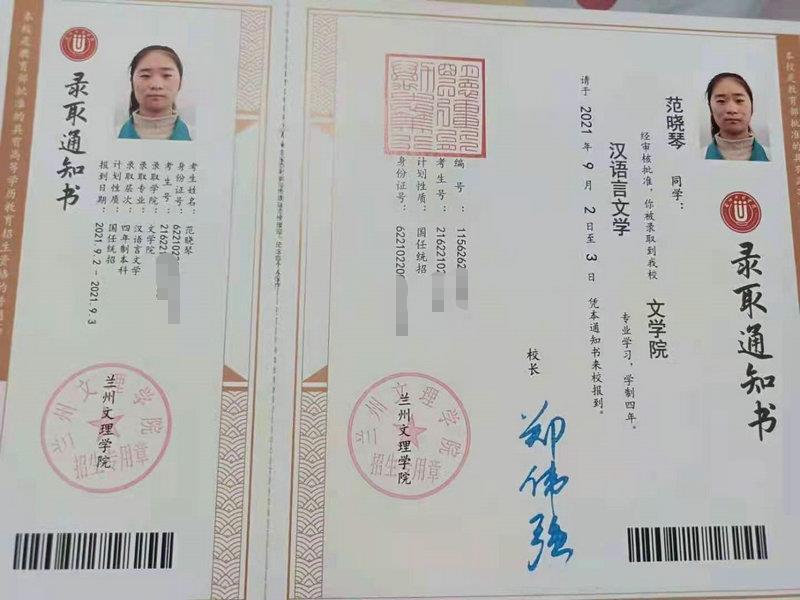 录取通知书
考生姓名：范晓琴
身份证号：6221022
考生号：216221
录取学院：文学院
录取专业：汉语言文学
录取层次：四年制本科
计划性质：国任统招
报到日期：2021.9.2-2021.9.3
兰州文理学院
兰州文理学院
招生专用章
本校是教育部批准的具有高等学历教育招生资格的普通
录取通知书
范晓琴 同学：
经审核批准，你被录取到我校 文学院
汉语言文学 专业学习，学制四年。
请于 2021 年 9 月 2 日至 3 日 凭本通知书来校报到。
校长
郑伟强
编号：1156262
考生号：21622102
计划性质：国任统招
身份证号：622102200
兰州文理学院
兰州文理学院
招生专用章
本校是教育部批准的具有高等学历